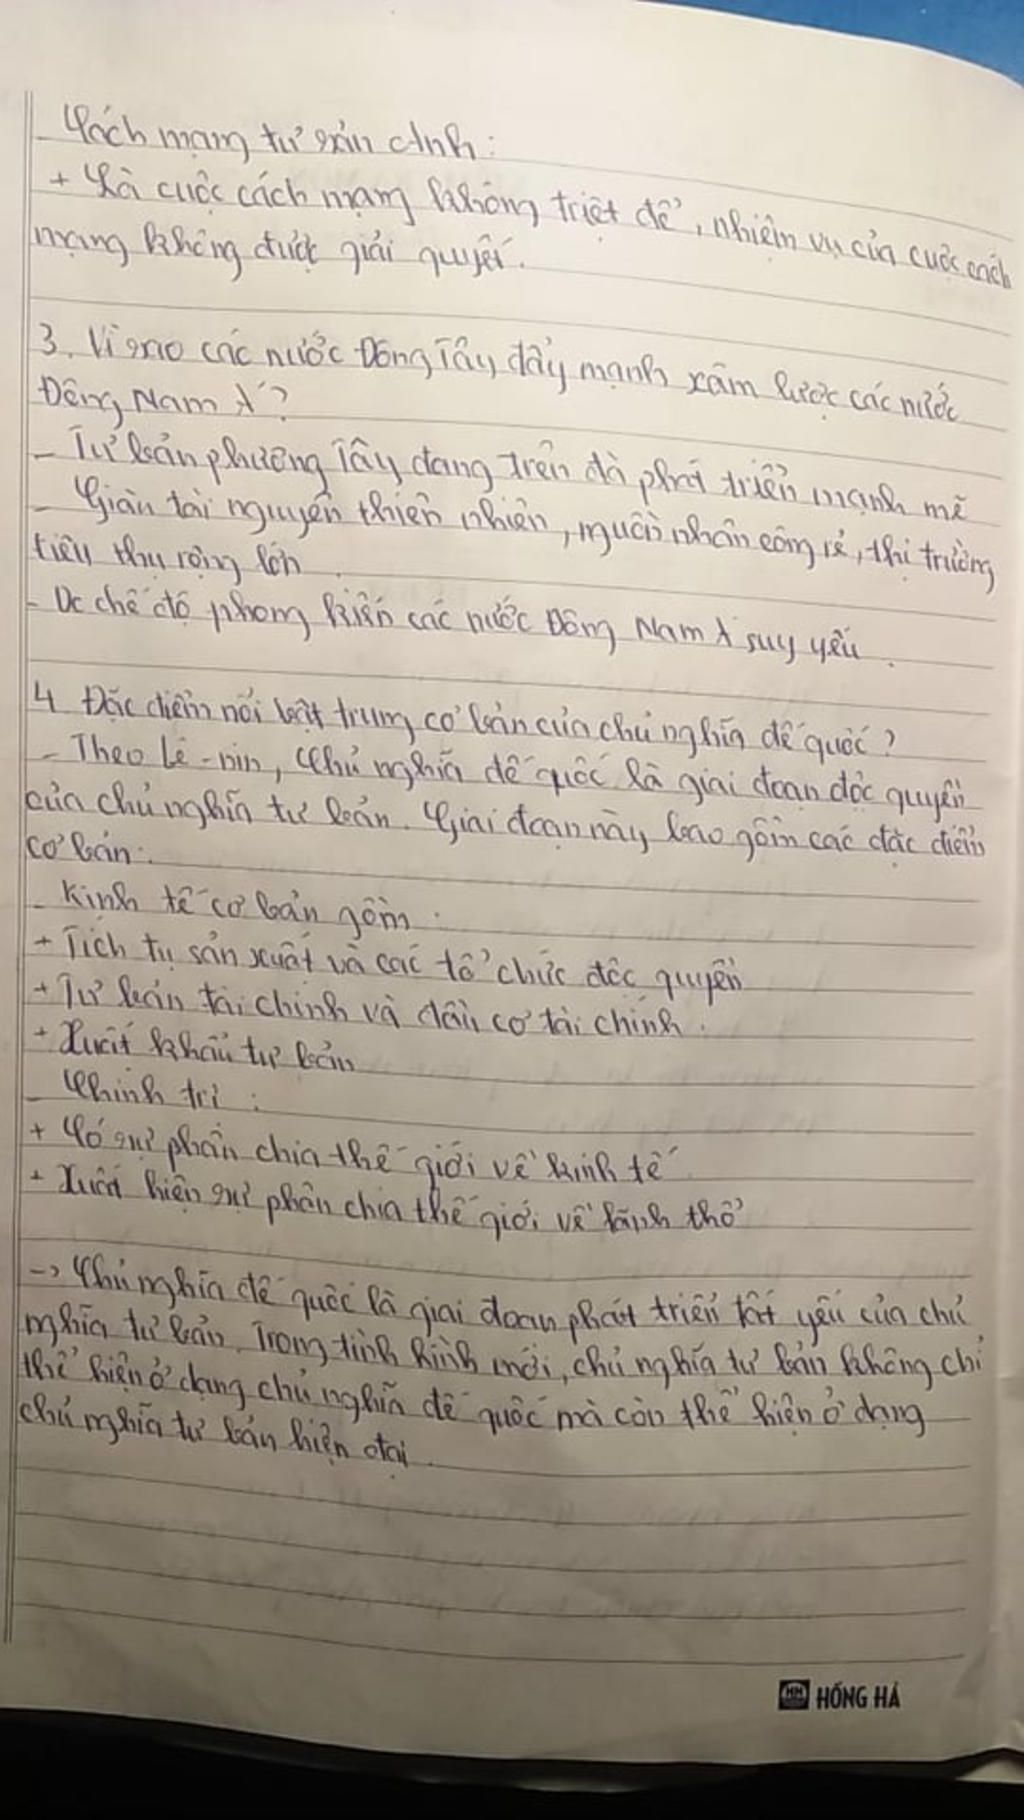 - Cách mạng tư sản Anh:
+ Là cuộc cách mạng không triệt để, nhiệm vụ của cuộc cách
mạng không được giải quyết.
3. Vì sao các nước Đông Tây đẩy mạnh xâm lược các nước
Đông Nam Á?
- Tư bản phương Tây đang trên đà phát triển mạnh mẽ
- Giàu tài nguyên thiên nhiên, nguồn nhân công rẻ, thị trường
tiêu thụ rộng lớn.
- Dc chế độ phong kiến các nước Đông Nam Á suy yếu.
4. Đặc điểm nổi bật trưng cơ bản của chủ nghĩa đế quốc?
- Theo Lê-nin, Chủ nghĩa đế quốc là giai đoạn độc quyền
của chủ nghĩa tư bản. Giai đoạn này bao gồm các đặc điểm
cơ bản:
- Kinh tế cơ bản gồm:
+ Tích tụ sản xuất và các tổ chức độc quyền
+ Tư bản tài chính và đầu cơ tài chính.
+ Xuất khẩu tư bản
- Chính trị:
+ Có sự phân chia thế giới về kinh tế
+ Xuất hiện sự phân chia thế giới về lãnh thổ
-> Chủ nghĩa đế quốc là giai đoạn phát triển tất yếu của chủ
nghĩa tư bản. Trong tình hình mới, chủ nghĩa tư bản không chỉ
thể hiện ở dạng chủ nghĩa đế quốc mà còn thể hiện ở dạng
chủ nghĩa tư bản hiện đại.
HH HỒNG HÀ